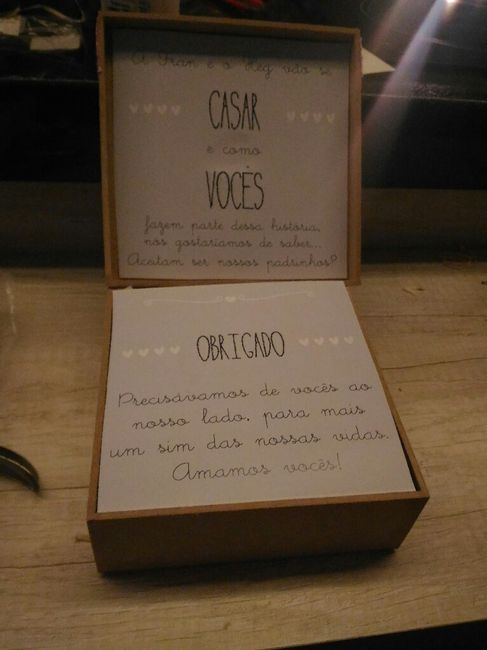 A Fran e o Heg vão se
CASAR
e como
VOCÊS
fazem parte dessa história,
nós gostaríamos de saber...
Aceitam ser nossos padrinhos?
OBRIGADO
Precisávamos de vocês ao
nosso lado, para mais
um sim das nossas vidas.
Amamos vocês!